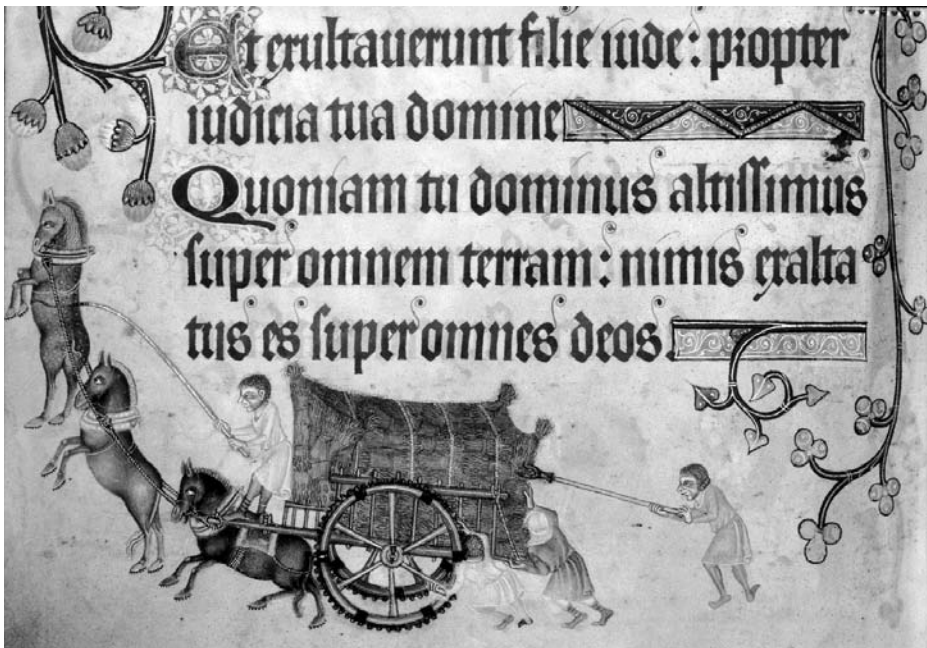 Et exultauerunt filie iude: propter
iudicia tua domine
Quoniam tu dominus altissimus
super omnem terram: nimis exalta
tus es super omnes deos.